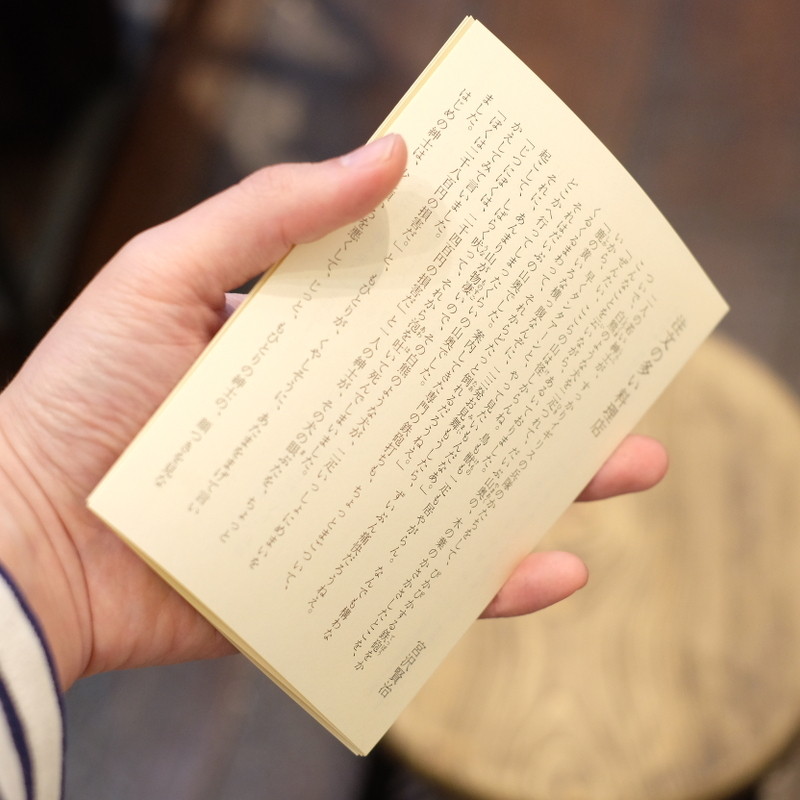 注文の多い料理店
宮沢賢治
二人の若い紳士が、すっかりイギリスの兵隊のかたちをして、ぴかぴかする鉄砲をか
ついで、白熊のような犬を二疋つれて、だいぶ山奥の、木の葉のかさかさしたとこを、
こんなことを云いながら、あるいておりました。
「ぜんたい、ここらの山は怪しからんね。鳥も獣も一疋も居やがらん。なんでも構わな
いから、早くタンタアーンと、やって見たいもんだなあ。」
「鹿の黄いろな横っ腹なんぞに、二三発お見舞もうしたら、ずいぶん痛快だろうねえ。
くるくるまわって、それからどたっと倒れるだろうねえ。」
それはだいぶの山奥でした。案内してきた専門の鉄砲打ちも、ちょっとまごついて、
どこかへ行ってしまったくらいの山奥でした。
それに、あんまり山が物凄いので、その白熊のような犬が、二疋いっしょにめまいを
起こして、しばらく吠って、それから泡を吐いて死んでしまいました。
「じつにぼくは、二千四百円の損害だ」と一人の紳士が、その犬の眼ぶたを、ちょっと
かえしてみて言いました。
「ぼくは二千八百円の損害だ。」と、もひとりが、くやしそうに、あたまをまげて言い
ました。
はじめの紳士は、ろを悪くして、じっと、もひとりの紳士の、顔つきを見な